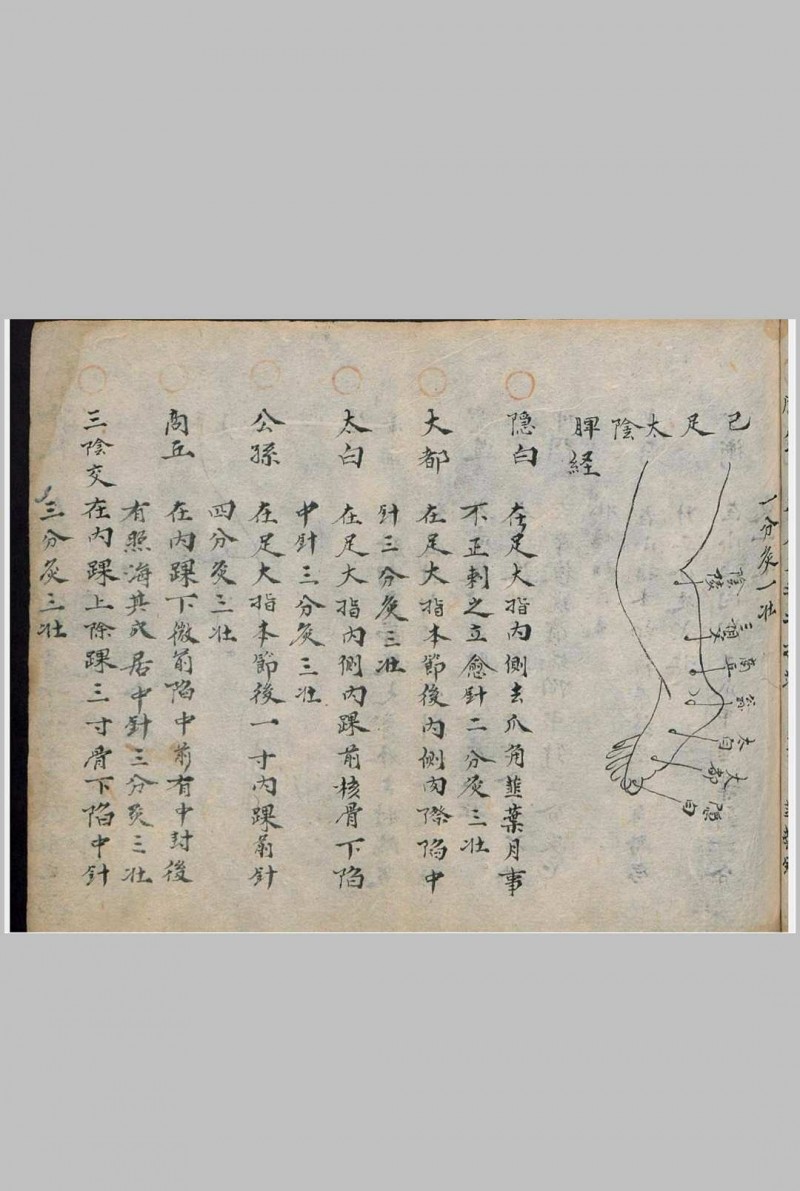 一分灸一壮
己足太陰
脾経
陰陵
三陰交
商丘
太白
大都
隠白
隠白 在足大指内側去爪角韮葉月事
不正刺之立愈針二分灸三壮
大都 在足大指本節後内側肉際陷中
針三分灸三壮
太白 在足大指内側内踝前核骨下陷
中針三分灸三壮
公孫 在足大指本節後一寸内踝前針
四分灸三壮
商丘 在内踝下微前陷中前有中封後
有照海其穴居中針三分灸三壮
三陰交 在内踝上除踝三寸骨下陷中針
三分灸三壮